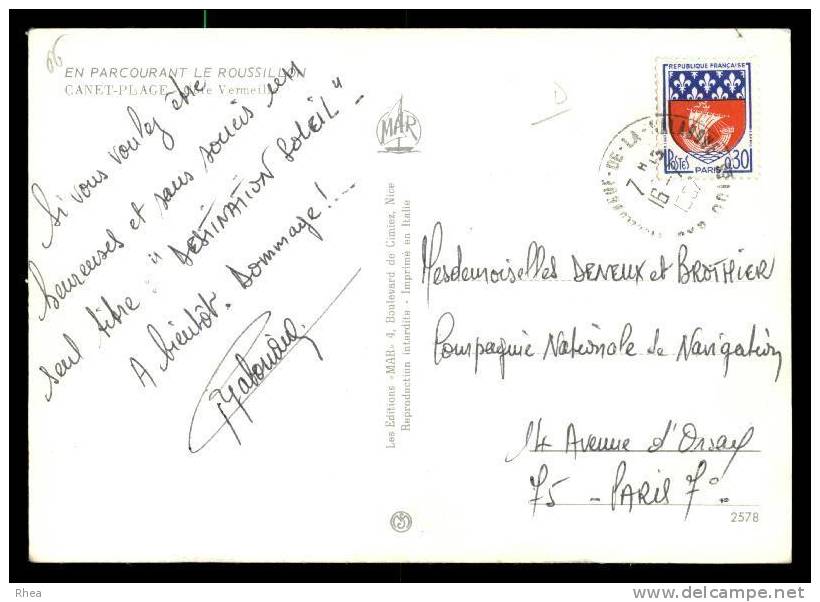 66
EN PARCOURANT LE ROUSSILLON
CANET-PLAGE Vermeille
Si vous voulez être
heureuses et sans soucis un
seul titre " DESTINATION SOLEIL" -
A bientôt. Dommage!!
MAR
Les Editions «MAR» 4, Boulevard de Cimiez, Nice
Reproduction interdite - Imprimé en Italie
D
REPUBLIQUE FRANÇAISE
POSTES
0,30
PARIS
DE-LA-
7 H
16
Mesdemoiselles DENEUX et BROTHIER
Compagnie Nationale de Navigation
14 Avenue d'Orsay
75 - PARIS 7°
2578
Rhea
www.delcampe.net